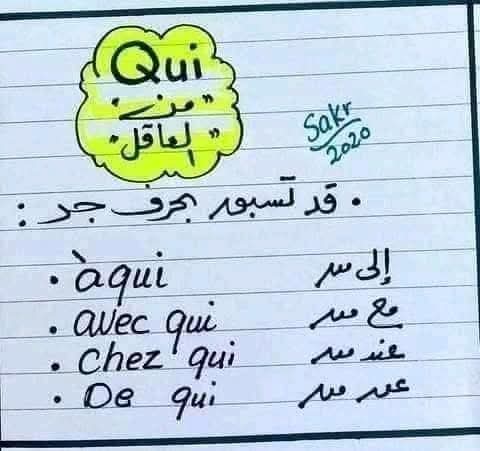 Qui
"من"
"العاقل"
Sakr
2020
• قد تسبق بحرف جر :
• à qui إلى من
• avec qui مع من
• chez qui عند من
• De qui عن من